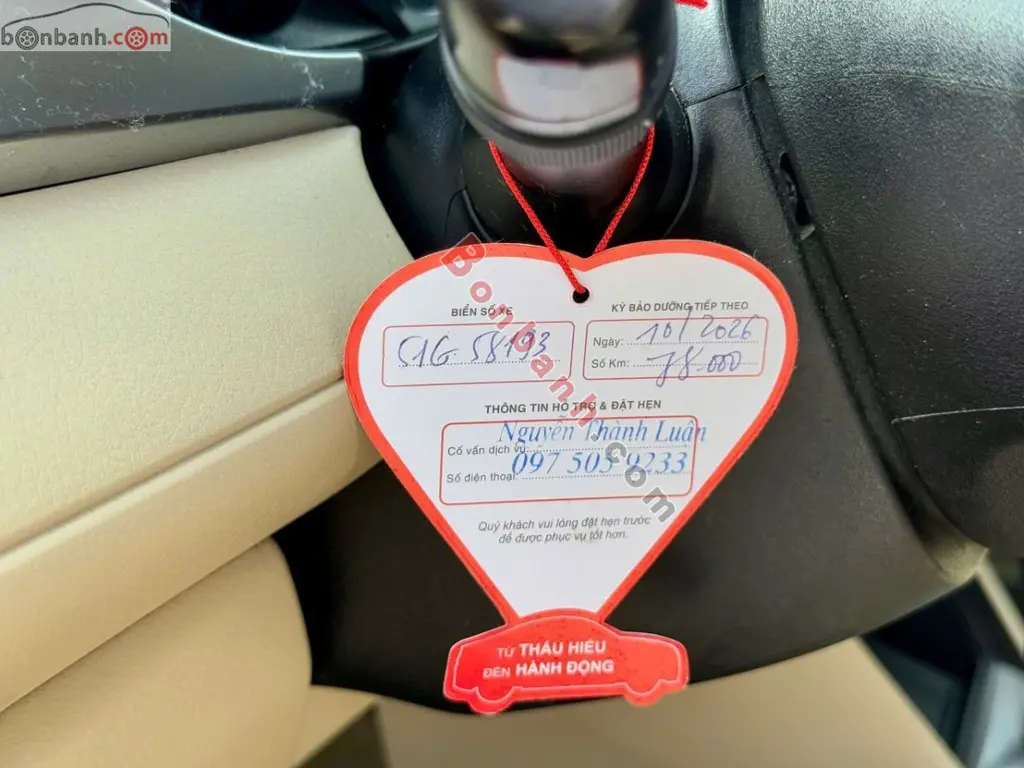 bonbanh.com
BIỂN SỐ XE
KỲ BẢO DƯỠNG TIẾP THEO
51G 58193
Ngày: 10/2026
Số Km: 78 000
THÔNG TIN HỖ TRỢ & ĐẶT HẸN
Cố vấn dịch vụ: Nguyễn Thành Luận
Số điện thoại: 097 505 9233
Quý khách vui lòng đặt hẹn trước
để được phục vụ tốt hơn.
TỪ THẤU HIỂU
ĐẾN HÀNH ĐỘNG
Bonbanh.com